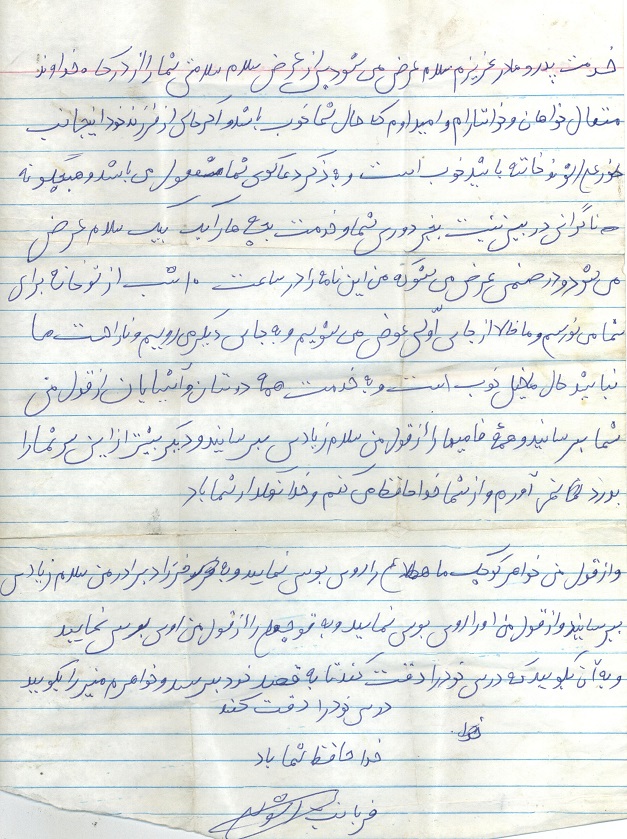 خدمت پدر و مادر عزیزم سلام عرض می شود پس از عرض سلام سلامتی شما را از درگاه خداوند
متعال خواهان و خواستارم و امیدوارم که حال شما خوب باشد و اگر حالی از فرزند خود اینجانب
خواسته باشید خوب است و به ذکر دعاگوی شما مشغول می باشد و هیچگونه
نگرانی در بین نیست بغیر دوری شما و خدمت بچه ها را یک یک سلام عرض
می شود و در ضمن عرض می شود که من این نامه را در ساعت ۱۰ شب از توخانه برای
شما می نویسم و ما حالا از جای اولی عوض می شویم و به جای دیگر می رویم و ناراحت ما
نباشید حال ما خیلی خوب است و به خدمت همه دوستان و آشنایان از قول من
سلام برسانید و همۀ فامیلها را از قول من سلام زیاد برسانید و دیگر بیشتر از این سر شما را
بدرد نمی آورم و از شما خداحافظی می کنم و خدا نگهدار شما باد
و از قول من خواهر کوچک ما را روی بوسی نمایید و به فرزاد برادر من سلام زیادی
برسانید و از قول من او را روی بوسی نمایید و به را از قول من روی بوسی نمایید
و به آن بگویید که درس خود را دقت کند تا به قصد خود برسد و خواهرم منیر را بگویید
درس خود را دقت کند
خدا حافظ شما باد
قربانت